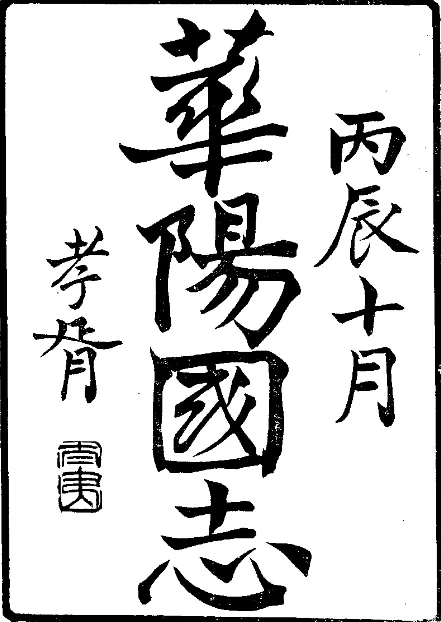 丙辰十月
華陽國志
孝胥